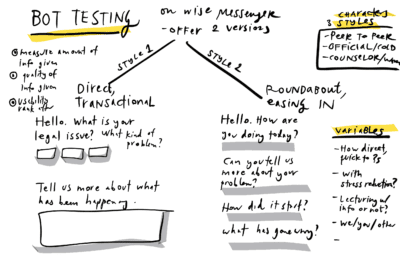 BOT TESTING
on wise Messenger
- offer 2 versions
measure amount of
info given
quality of
info given
usability
rank
STYLE 1
Direct,
Transactional
Hello. What is your
legal issue? What kind of
problem?
Tell us more about what
has been happening.
STYLE 2
ROUNDABOUT,
easing IN
Hello. How are
you doing today?
Can you tell us
more about your
problem?
How did it start?
what has gone wrong?
CHARACTER
STYLES
- PEER TO PEER
- OFFICIAL/COLD
- COUNSELOR/
VARIABLES
- How direct,
quick to ?s
- with
stress reduction?
- Lecturing w/
info or not?
- we/you/other
-